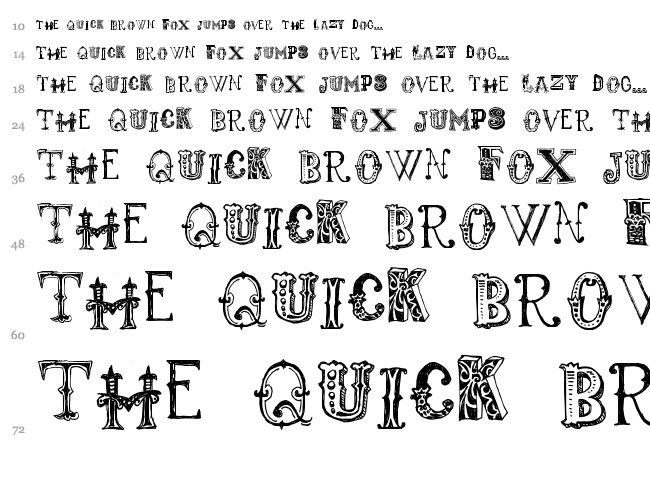 10 The Quick Brown Fox jumps over the Lazy Dog...
14 The Quick Brown Fox jumps over The Lazy Dog...
18 The Quick Brown Fox jumps over The Lazy Dog...
24 The Quick Brown Fox jumps over Th
36 The Quick Brown Fox ju
48 The Quick Brown F
60 The Quick Brow
72 The Quick Br